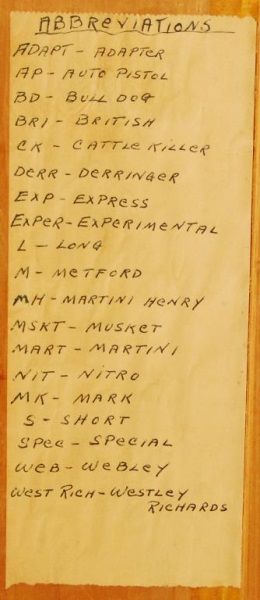 ABBREVIATIONS
ADAPT - ADAPTER
AP - AUTO PISTOL
BD - BULL DOG
BRI - BRITISH
CK - CATTLE KILLER
DERR - DERRINGER
EXP - EXPRESS
EXPER - EXPERIMENTAL
L - LONG
M - METFORD
MH - MARTINI HENRY
MSKT - MUSKET
MART - MARTINI
NIT - NITRO
MK - MARK
S - SHORT
SPEC - SPECIAL
WEB - WEBLEY
WEST RICH - WESTLEY
RICHARDS